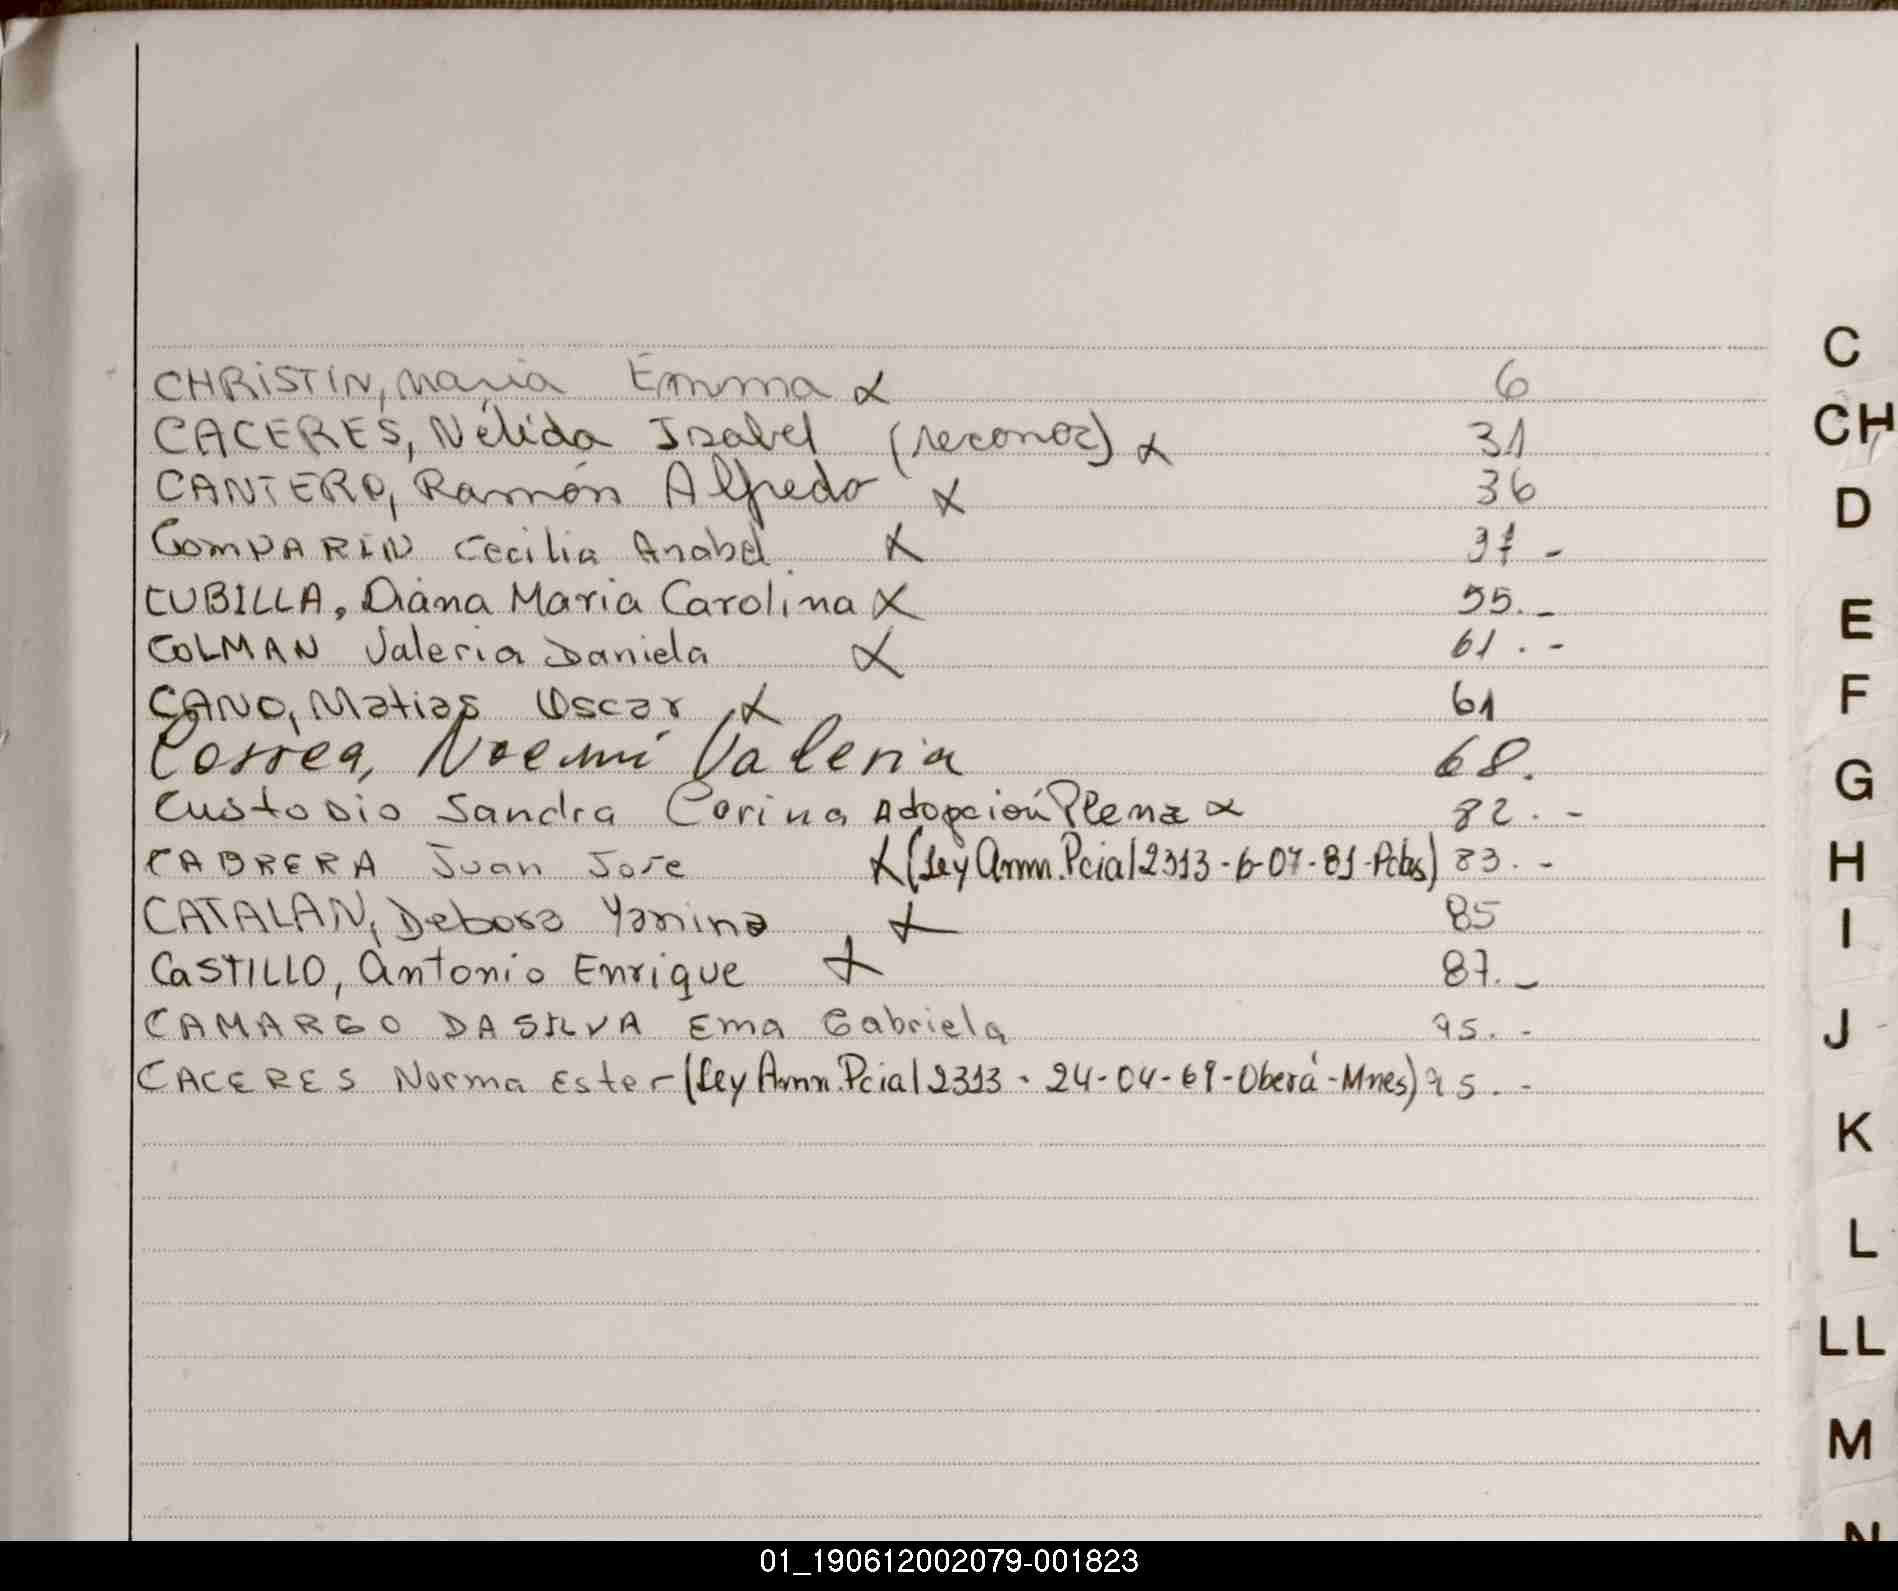 CHRISTIN, María Emma X 6
CACERES, Nélida Isabel (reconoc) X 31
CANTERO, Ramón Alfredo X 36
COMPARIN Cecilia Anabel X 37 -
CUBILLA, Diana Maria Carolina X 55. -
COLMAN Valeria Daniela X 61. -
CANO, Matias Oscar X 61
Correa, Noemí Valeria 68.
Custodio Sandra Corina Adopción Plena X 82. -
CABRERA Juan Jose X (Ley Amn. Pcial 2313 - 6-07-81 - Pdas) 83. -
CATALAN, Debora Yanina X 85
CASTILLO, Antonio Enrique X 87. -
CAMARGO DA SILVA Ema Gabriela 95. -
CACERES Norma Ester - (Ley Amn. Pcial 2313 - 24-04-69 - Oberá - Mnes) 95. -
C
CH
D
E
F
G
H
I
J
K
L
LL
M
N
01_190612002079-001823